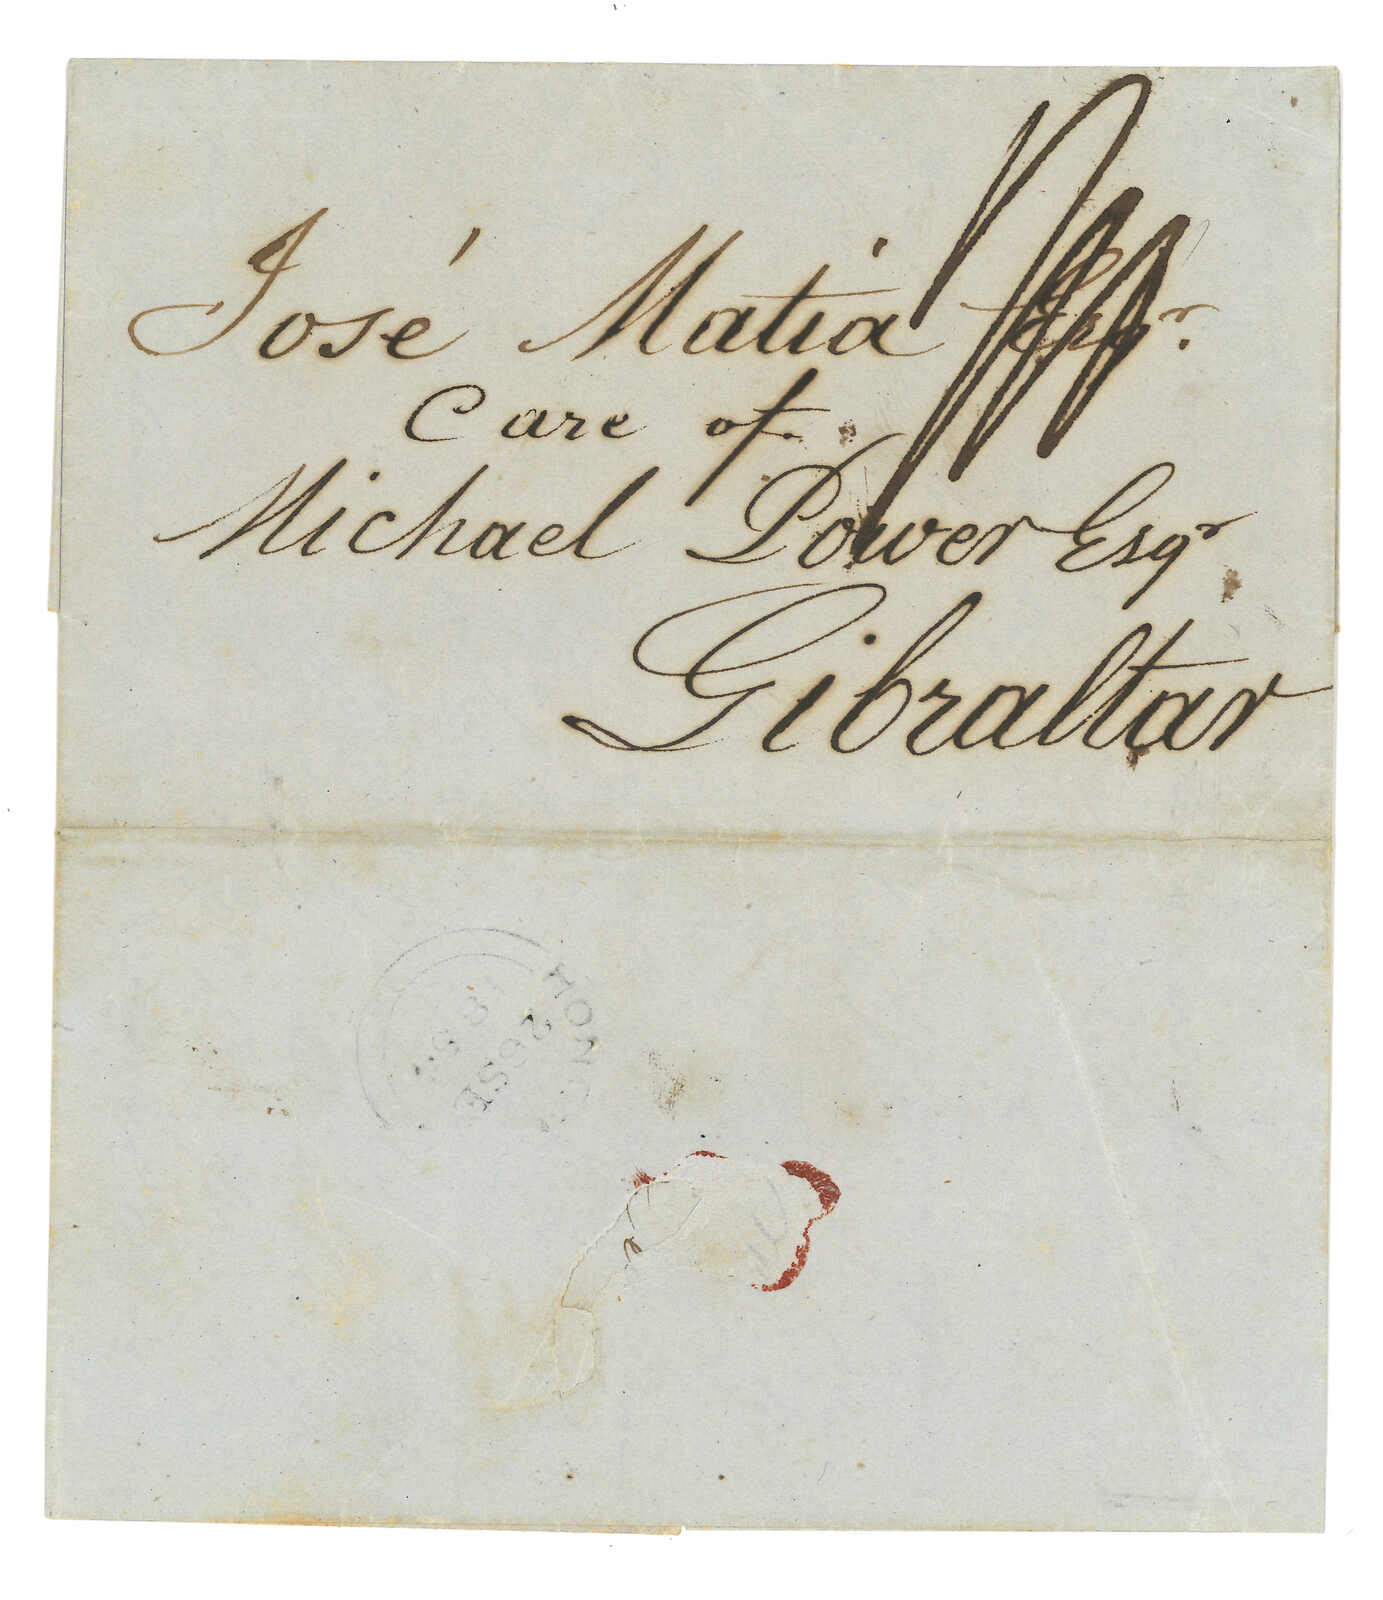 José Matiá Esqr.
Care of
Michael Power Esqr
Gibraltar
HONG
26 SE
185